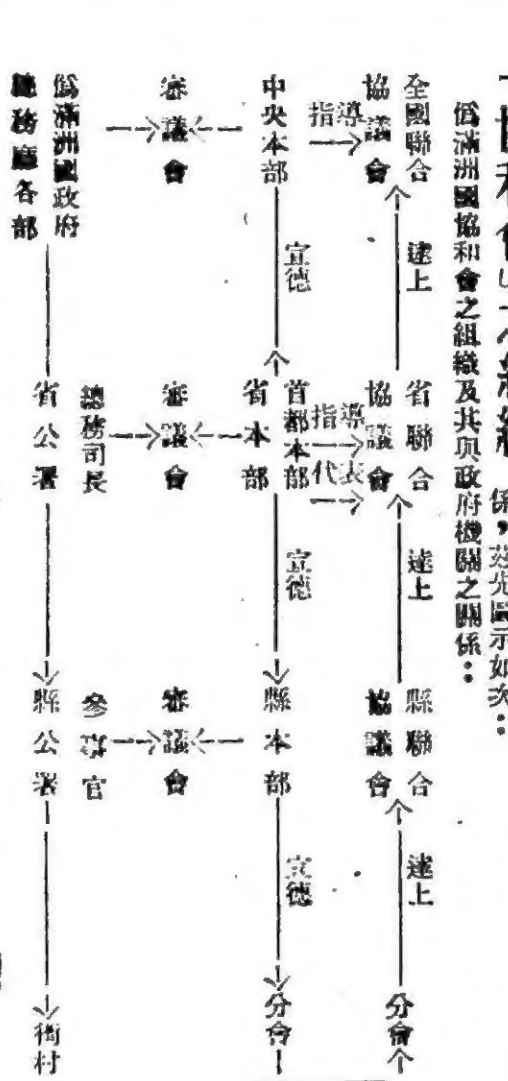 係，茲先圖示如次：
僞滿洲國協和會之組織及其與政府機關之關係：
全國聯合
協議會
達上
省聯合
協議會
達上
縣聯合
協議會
達上
分會
指導
指導
代表
中央本部
宣德
首都本部
省本部
宣德
縣本部
宣德
分會
審議會
審議會
審議會
僞滿洲國政府
總務廳各部
總務司長
省公署
參事官
縣公署
街村